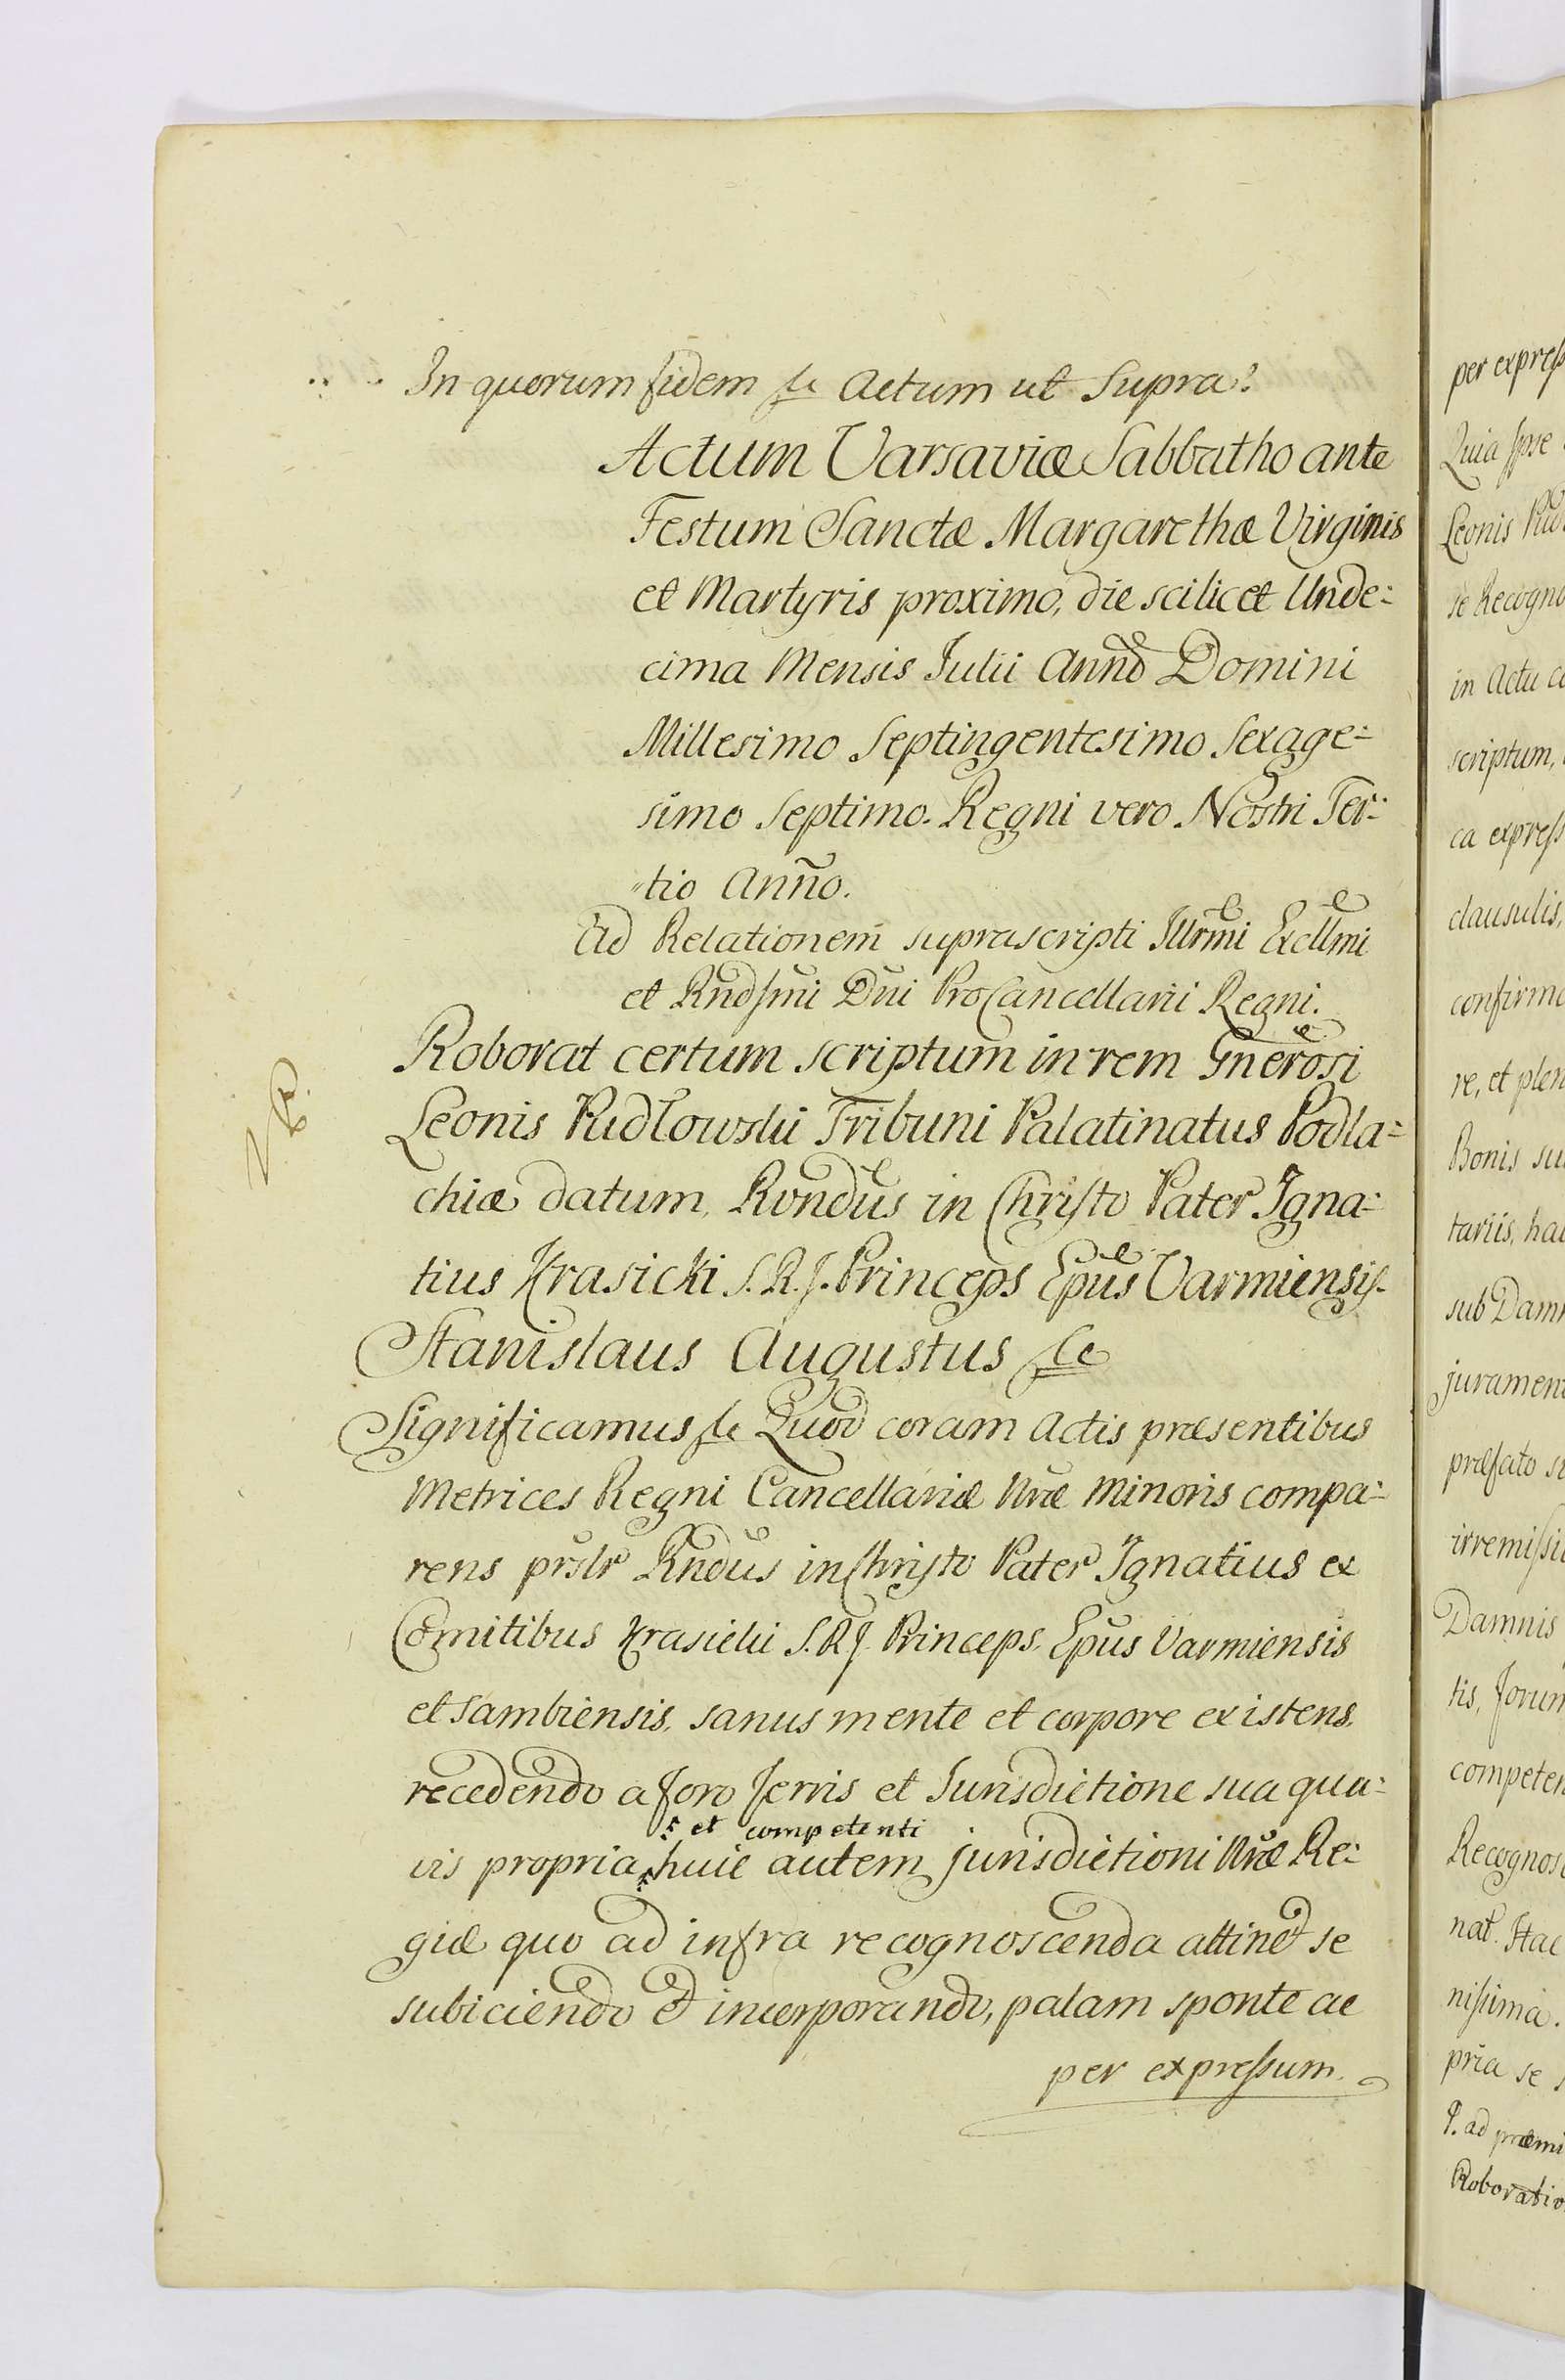 In quorum fidem &c Actum ut Supra.
Actum Varsaviæ Sabbatho ante
Festum Sanctæ Margarethæ Virginis
et Martyris proximo, die scilicet Unde=
cima Mensis Julii Anno Domini
Millesimo Septingentesimo Sexage=
simo Septimo. Regni vero Nostri Ter=
tio Anno.
Ad Relationem suprascripti Illrmi Excllmi
et Rndssmi Dni ProCancellarii Regni.
Roborat certum scriptum in rem Gnerosi
Leonis Pudłowski Tribuni Palatinatus Podla=
chiæ datum, Rvndus in Christo Pater Igna=
tius Krasicki S. R. J. Princeps Epus Varmiensis
Stanislaus Augustus &c
Significamus &c Quod coram Actis præsentibus
Metrices Regni Cancellariæ Nræ Minoris compa=
rens prslr Rndus in Christo Pater Ignatius ex
Comitibus Krasicki S. R. J. Princeps, Epus Varmiensis
et Sambiensis, sanus mente et corpore existens,
recedendo a foro Terris et Jurisdictione sua qua=
et competenti
vis propria huic autem jurisdictioni Nræ Re=
giæ quo ad infra recognoscenda attinet se
subiciendo et incorporando, palam sponte ac
per expressum.
per express
Quia Ipse
Leonis Pud
se Recogno
in Actu co
scriptum,
ca express
clausulis,
confirma
re, et plen
Bonis su
tariis, ha
sub Dam
jurament
præfato s
irremissi
Damnis
tis, forum
competen
Recognos
nat. Hac
nissima.
pria se s
P. ad præmi
Roboratio